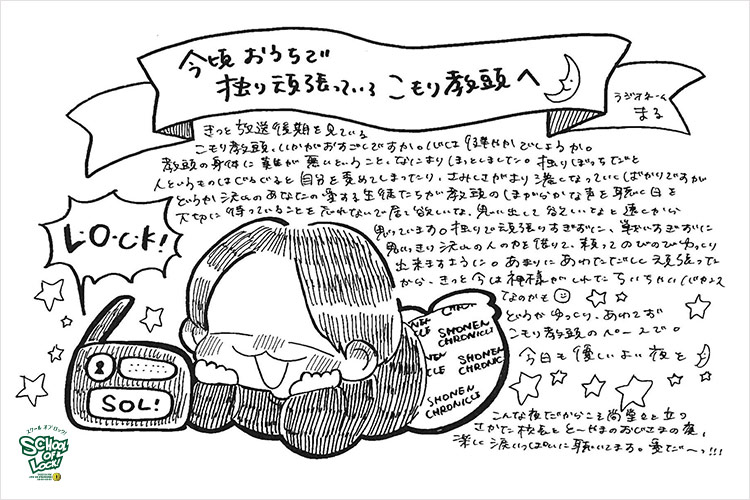 今頃おうちで
独り頑張っている こもり教頭へ
ラジオネーム
まる
きっと放送後期を見ている
こもり教頭、いかがおすごしですか。心は穏やかでしょうか。
教頭の身体に異常が無いということ、なによりほっとしました。独りぼっちだと
人というものはぐるぐると自分を責めてしまったり、さみしさがより濃くなっていくばかりですが
どうか沢山のあなたの愛する生徒たちが教頭のほがらかな声を聴く日を
大切に待っていることを忘れないで居て欲しいな、思い出して欲しいなと遠くから
思っています。独りで頑張りすぎずに、戦いすぎずに
思いっきり沢山の人の力を借りて、頼ってのびのびゆっくり
出来ますように。あまりにあわただしく頑張ってた
から、きっと今は神様がくれたちいちゃいバカンス
なのかも
どうかゆっくり、あわてず
こもり教頭のペースで。
今日も優しいよい夜を
L·O·C·K!
SOL!
SHONEN
CHRONICLE
SHONEN
CHRONICLE
SHONEN
CHRONICLE
こんな夜だからこそ尚堂々と立つ
さかた校長ととーやまのおじさまの夜、
楽しく涙いっぱいに聴いてます。愛だ〜っ!!!
スクール オブ ロック!
SCHOOL
OF
LOCK!